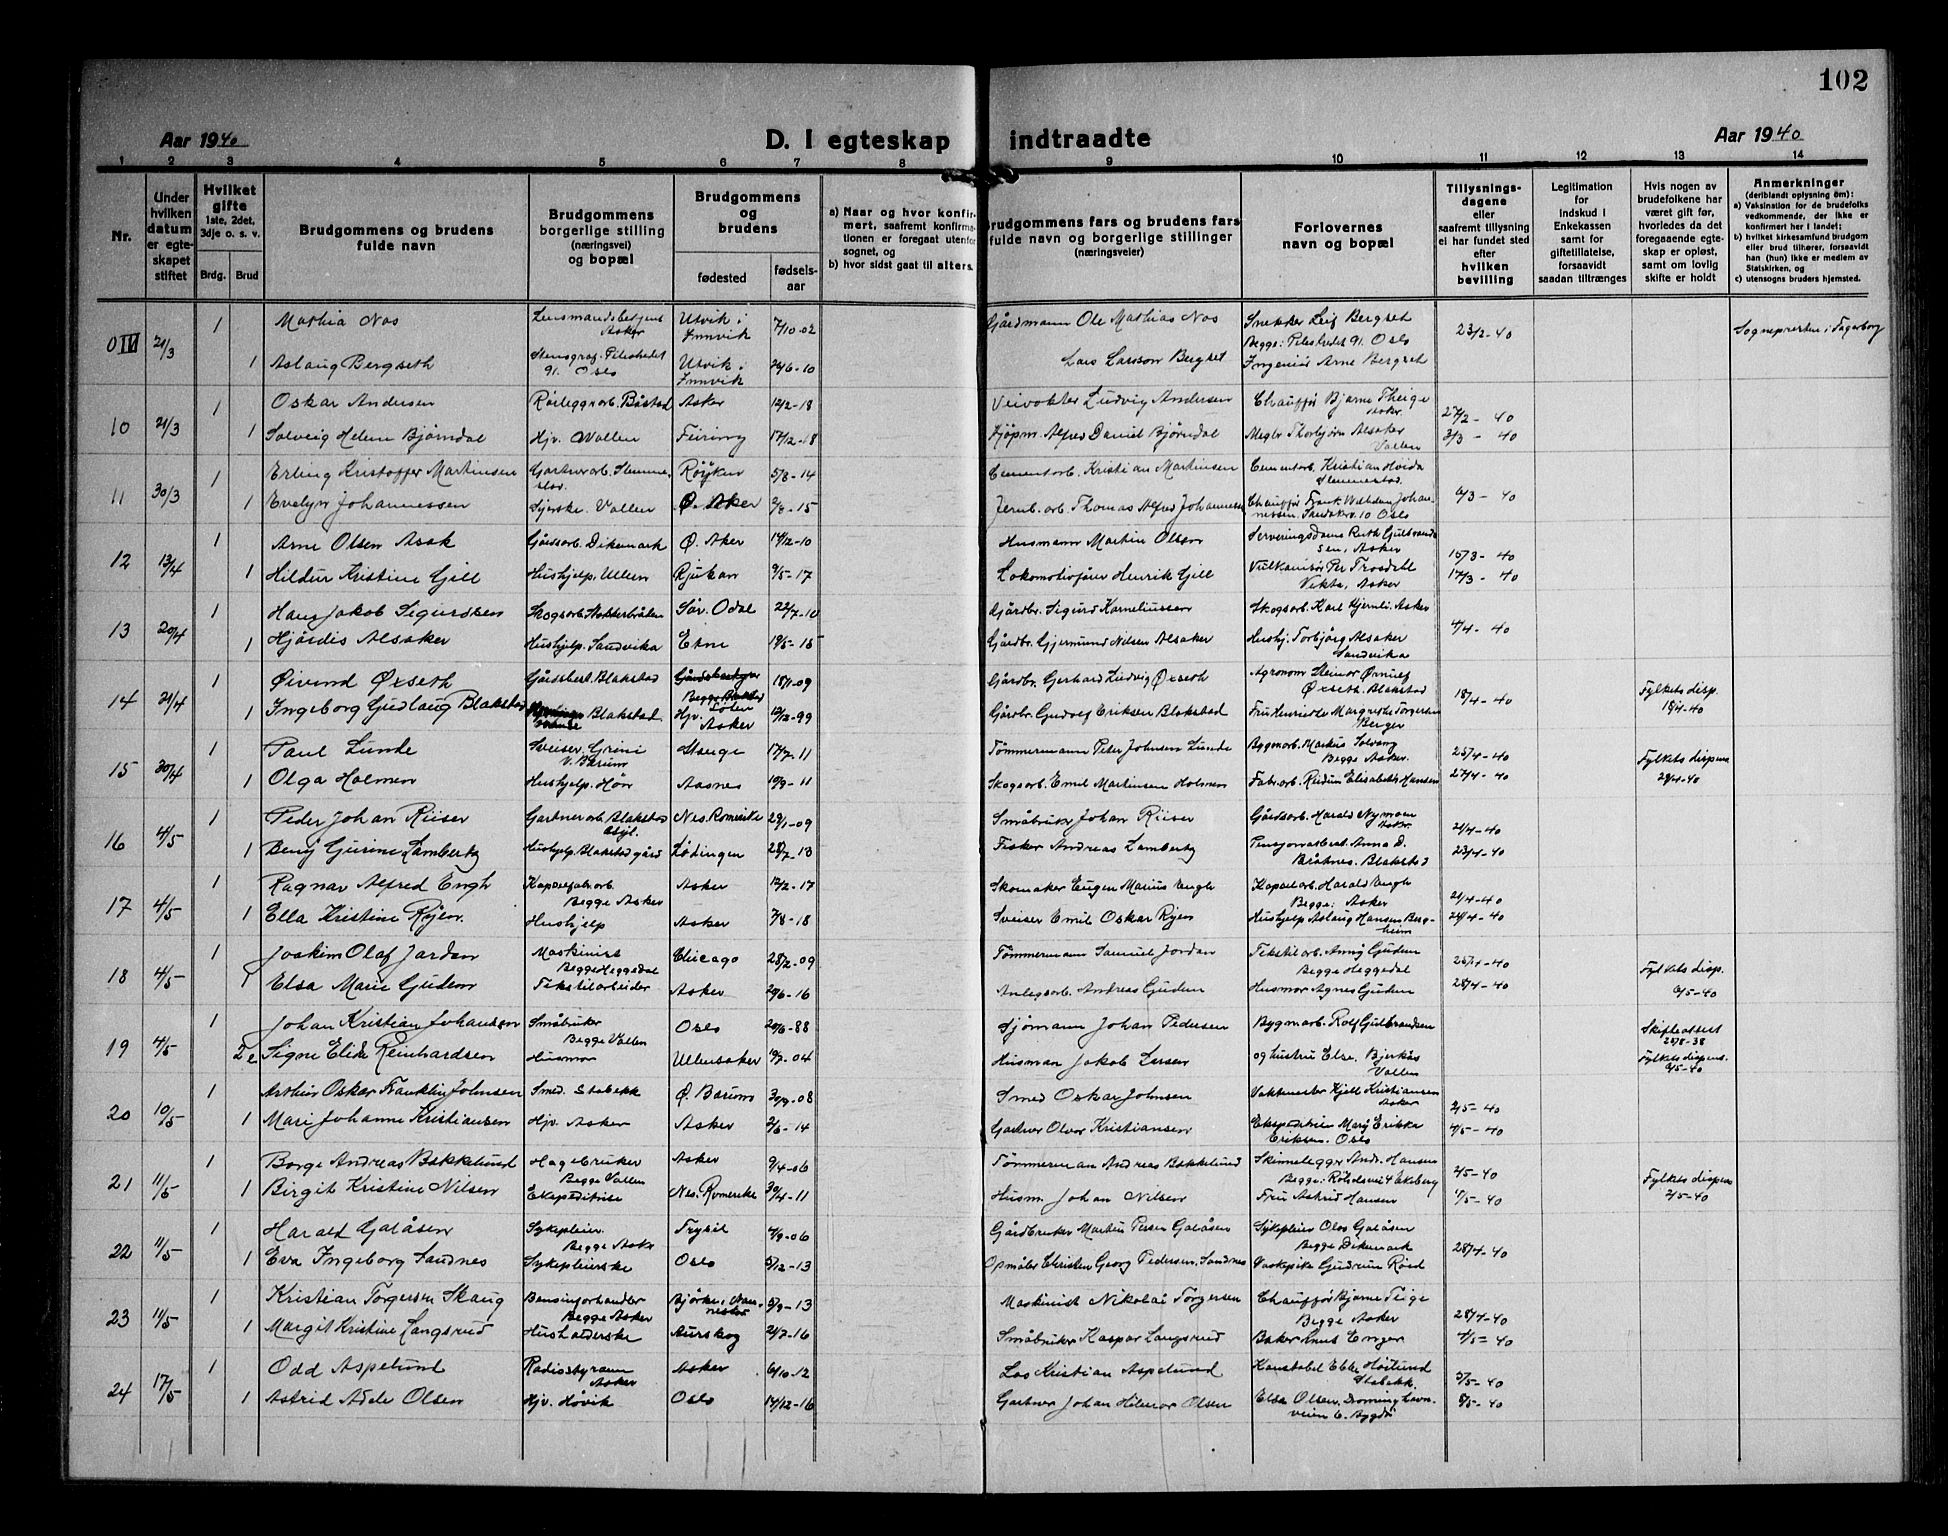 102
Aar 1940 D. I egteskap indtraadte Aar 1940
1 2 3 4 5 6 7 8 9 10 11 12 13 14
Nr.
Under hvilken datum er egteskapet stiftet
Hvilket gifte 1ste, 2det, 3dje o. s. v.
Brdg. Brud
Brudgommens og brudens fulde navn
Brudgommens borgerlige stilling (næringsvei) og bopæl
Brudgommens og brudens
fødested
fødsels-aar
a) Naar og hvor konfirmert, saafremt konfirmationen er foregaat utenfor sognet, og
b) hvor sidst gaat til alters.
Brudgommens fars og brudens fars fulde navn og borgerlige stillinger (næringsveier)
Forlovernes navn og bopæl
Tillysnings-dagene eller saafremt tillysning ei har fundet sted efter hvilken bevilling
Legitimation for Indskud i Enkekassen samt for giftetillatelse, forsaavidt saadan tiltrænges
Hvis nogen av brudefolkene har været gift før, hvorledes da det foregaaende egteskap er opløst, samt om lovlig skifte er holdt
Anmerkninger
(deriblandt oplysning om):
a) Vaksination for de brudefolks vedkommende, der ikke er konfirmert her i landet;
b) hvilket kirkesamfund brudgom eller brud tilhører, forsaavidt han (hun) ikke er medlem av Statskirken, og
c) utensogns bruders hjemsted.
21/3 1 Mathia Nos Lensmandsbetjent Asker Utvik i Innvik 7/10-02 Gårdmann Ole Mathias Nos Snekker Leif Bergset 23/2-40 Sognepresten i Fagerborg
1 Aslaug Bergseth Stenograf. Pilestredet 91. Oslo Utvik i Innvik 26/6-10 Lars Larsson Bergset Begge: Pilestredet 91. Oslo Ingeniør Arne Bergset
10 21/3 1 Oskar Andersen Rørleggerarb. Båstad Asker 12/2-18 Veivokter Ludvig Andersen Chauffør Bjarne Theige Asker 27/2-40
1 Solveig Helene Bjørndal Hjv. Vollen Feiring 17/12-18 Kjøpm. Alfred Daniel Bjørndal Megler Thorbjørn Alsaker Vollen 3/3-40
11 30/3 1 Erling Kristoffer Martinsen Gartnerarb. Slemmestad. Røyken 5/8-14 Cementarb. Kristian Martinsen Cementarb. Kristian Hvida Slemmestad.
1 Evelyn Johannessen Syerske. Vollen Ø. Aker Jernb. arb. Thomas Alfred Johannessen 6/3-40
12 13/4 1 Arne Olsen Ask Gårdsarb. Dikemark Ø. Aker 14/12-10 Husmann Martin Olsen Serveringsdame Ruth Gulbrandsen, Asker 15/3-40
1 Hildur Kristine Gjill Hushjelp. Ullern Rjukan 9/5-17 Lokomotivfører Henrik Gjill Vulkanisør Per Trosdahl Vekta, Asker 17/3-40
13 20/4 1 Hans Jakob Sigurdsen Skogsarb. Sør. Odal 22/7-10 Gårdbr. Sigurd Korneliussen Skogsarb. Karl Hjernli. Asker
1 Hjørdis Alsaker Hushjelp. Sandvika Etne 19/5-15 Gårdbr. Gjermund Nilsen Alsaker Hushj. Torbjørg Alsaker Sandvika 4/4-40
14 21/4 1 Øivind Øxseth Gårdsbest. Blakstad Løten 18/1-09 Gårdbr. Gerhard Ludvig Øxseth Agronom Steinar Ørnulf Øxseth. Blakstad 18/4-40 Fylkets disp. 18/4-40
1 Ingeborg Gudlaug Blakstad Blakstad Hjv. Asker 12/12-99 Gårdbr. Gudolf Eriksen Blakstad Fru Henriette Margrethe Torgersen Berger
15 30/4 1 Paul Lunde Sveiser. Grini V. Bærum Stange 17/7-11 Tømmermann Peter Johnsen Lunde Bygmarb. Markus Solvang Begge Asker. 25/4-40 Fylkets dispens
1 Olga Holmen Hushjelp. Høn Aasnes 19/9-11 Skogsarb. Emil Martinsen Holmen Fabr.arb. Reidun Elisabeth Hansen 27/4-40 29/4-40
16 4/5 1 Peder Johan Riiser Gartnerarb. Blakstad Asyl. Nes. Romerike 29/1-09 Småbruker Johan Riiser Gårdsarb. Harald Nymoen Asker 21/4-40
1 Beny Gurine Lambertz Hushjelp. Blakstad gård Lødingen 28/7-13 Fisker Andreas Lambertz Pensjonatbest. Anna D. Bråtnes. Blakstad 23/4-40
17 4/5 1 Ragnar Alfred Engh Kapselfabr.arb. Begge Asker Asker 12/2-17 Skomaker Eugen Marius Engh Kapselarb. Harald Engh Begge: Asker 21/4-40
1 Ella Kristine Ryen. Hushjelp Asker 7/8-18 Sveiser Emil Oskar Ryen Hushjelp Aslaug Hansen Bergheim 24/4-40
18 4/5 1 Joakim Olaf Jordan Maskinist Begge Heggedal Chicago 28/2-09 Tømmermann Samuel Jordan Tekstilarb. Anny Guden Begge Heggedal 25/4-40 Fylkets disp.
1 Elsa Marie Guden Tekstilarbeider Asker 20/6-16 Anlegsarb. Andreas Guden Husmor Agnes Guden 28/4-40 6/5-40
19 4/5 1 Johan Kristian Johansen Småbruker Begge Vollen Oslo 20/6-88 Sjømann Johan Pedersen Bygmarb. Rolf Gulbrandsen Skifteattest 25/8-38
2 Signe Elide Reinhardsen Husmor Ullensaker 19/7-04 Husman Jakob Larsen og hustru Else. Bjerkås Vollen Fylkets dispens. 2/5-40
20 10/5 1 Arthur Oskar Franklin Johnsen Smed. Stabekk Ø. Bærum 30/9-08 Smed Oskar Johnsen Vaktmester Kjell Kristiansen Asker 2/5-40
1 Mari Johanne Kristiansen Hjv. Asker Asker 2/6-14 Gartner Olvar Kristiansen Ekspeditrise Mary Erikka Eriksen. Oslo 4/5-40
21 11/5 1 Borge Andreas Bakkelund Hagebruker Begge Vollen Asker 9/4-06 Tømmerman Andreas Bakkelund Skinnlegger Andr. Hansen 2/5-40 Fylkets dispens
1 Birgit Kristine Nilsen Ekspeditrise Nes. Romerike 30/4-11 Husm. Johan Nilsen Fru Astrid Hansen 4/5-40 2/5-40
22 11/5 1 Harald Galåsen Sykepleier. Begge Asker Trysil 4/9-06 Gårdbruker Martin Persen Galåsen Sykepleier Olav Galåsen Begge Dikemark 28/4-40
1 Eva Ingeborg Sandnes Sykepleierske Oslo 5/12-13 Opmåler Christen Georg Pedersen. Sandnes Vaskepike Gudrun Røed
23 11/5 1 Kristian Torgersen Skaug Bensinforhandler Begge Asker Bjørke i Nannestad 5/9-13 Maskinist Nikolai Torgersen Chauffør Bjarne Teige Begge Asker 28/4-40
1 Margit Kristine Langsrud Husholderske Aurskog 24/7-16 Småbruker Kaspar Langsrud Baker Knut Enger 4/5-40
24 17/5 1 Odd Aspelund Radiostyrmann Asker Asker 6/10-12 Los Kristian Aspelund Konstabel Ebbe Høilund Stabekk. 5/5-40
1 Astrid Adele Olsen Hjv. Høvik Oslo 14/12-16 Gartner Johan Hilmar Olsen Elsa Olsen. Dronninghavnveien 6. Bygdø 8/5-40